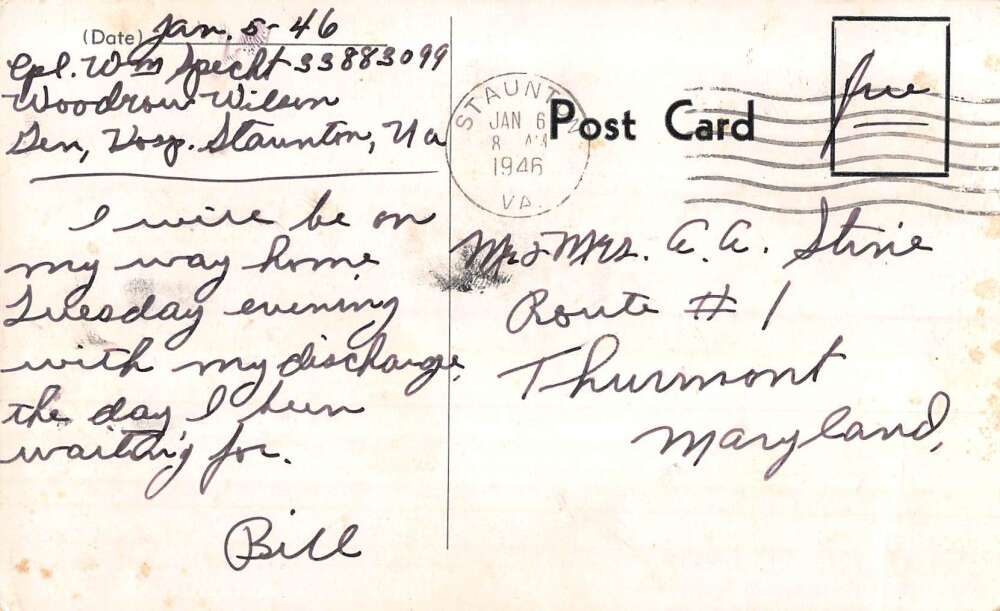 (Date) Jan. 5-46
Cpl. Wm Specht 33883099
Woodrow Wilson
Gen, Hosp. Staunton, Va
I will be on
my way home
Tuesday evening
with my discharge,
the day I been
waiting for.
Bill
STAUNTON
JAN 6
8 AM
1946
VA.
Post Card
free
Mr & Mrs. A. A. Stine
Route # 1
Thurmont
Maryland,